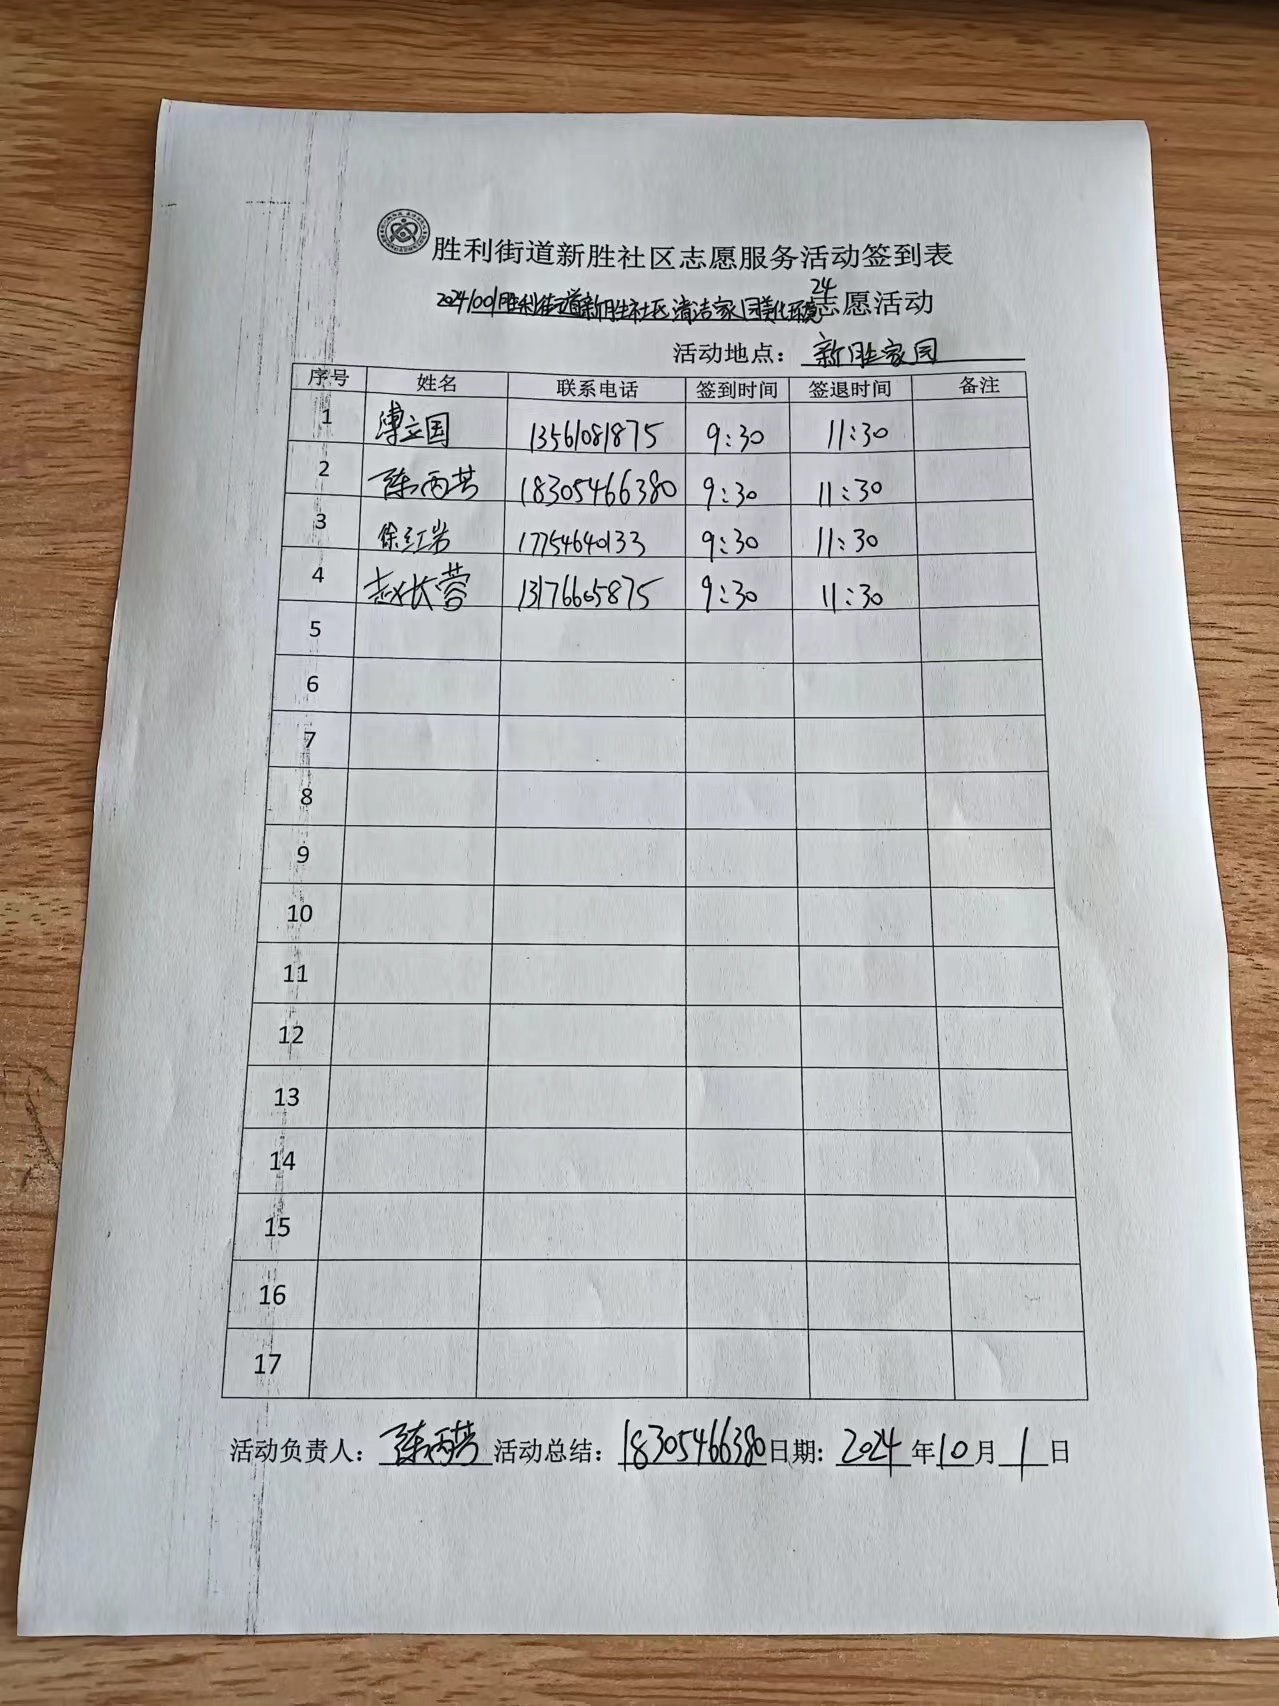 胜利街道新胜社区志愿服务活动签到表
20241001胜利街道新胜社区清洁家园美化环境24志愿活动
活动地点：新胜家园
序号 姓名 联系电话 签到时间 签退时间 备注
1 傅立国 13561081875 9:30 11:30
2 陈丙芸 18305466380 9:30 11:30
3 徐红岩 17754640133 9:30 11:30
4 赵长蓉 13176605875 9:30 11:30
5
6
7
8
9
10
11
12
13
14
15
16
17
活动负责人：陈丙芸 活动总结：18305466380 日期：2024年10月1日